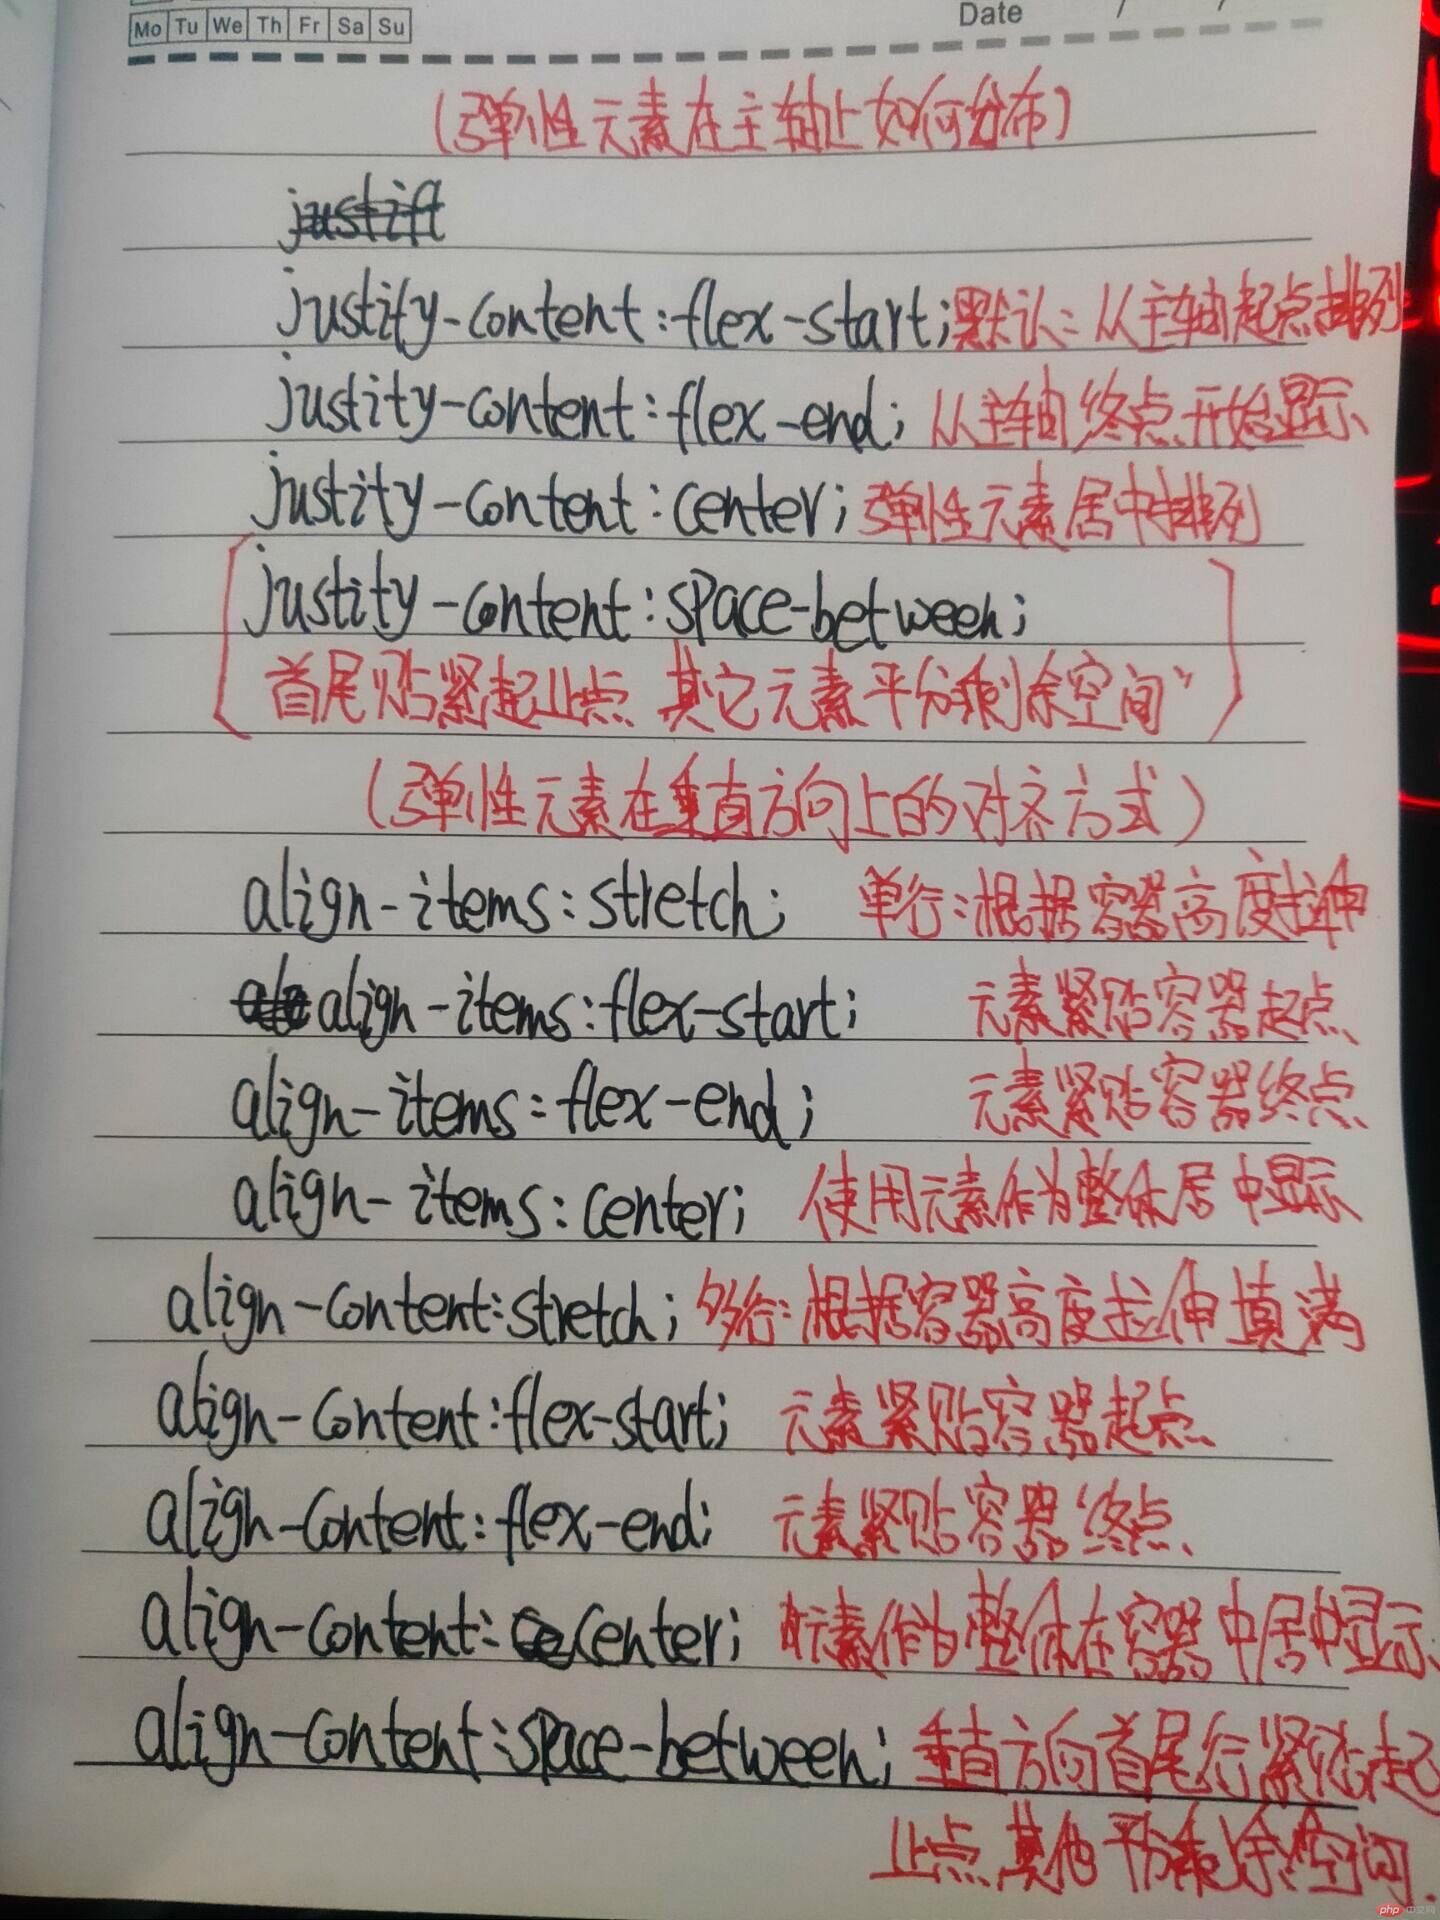 Mo Tu We Th Fr Sa Su
Date / /
(弹性元素在主轴上如何分布)
justift
justity-content:flex-start;默认:从主轴起点排列
justity-content:flex-end;从主轴终点开始显示
justity-content:center;弹性元素居中排列
justity-content:space-between;
首尾贴紧起止点 其它元素平分剩余空间"
(弹性元素在垂直方向上的对齐方式)
align-items:stretch; 单行:根据容器高度拉伸
align-items:flex-start; 元素紧贴容器起点
align-items:flex-end; 元素紧贴容器终点
align-items:center; 使用元素作为整体居中显示
align-content:stretch;多行:根据容器高度拉伸填满
align-content:flex-start; 元素紧贴容器起点
align-content:flex-end; 元素紧贴容器终点
align-content:center; 元素作为整体在容器中居中显示
align-content:space-between;垂直方向首尾行紧贴起
止点 其他平分剩余空间.
php 中文网